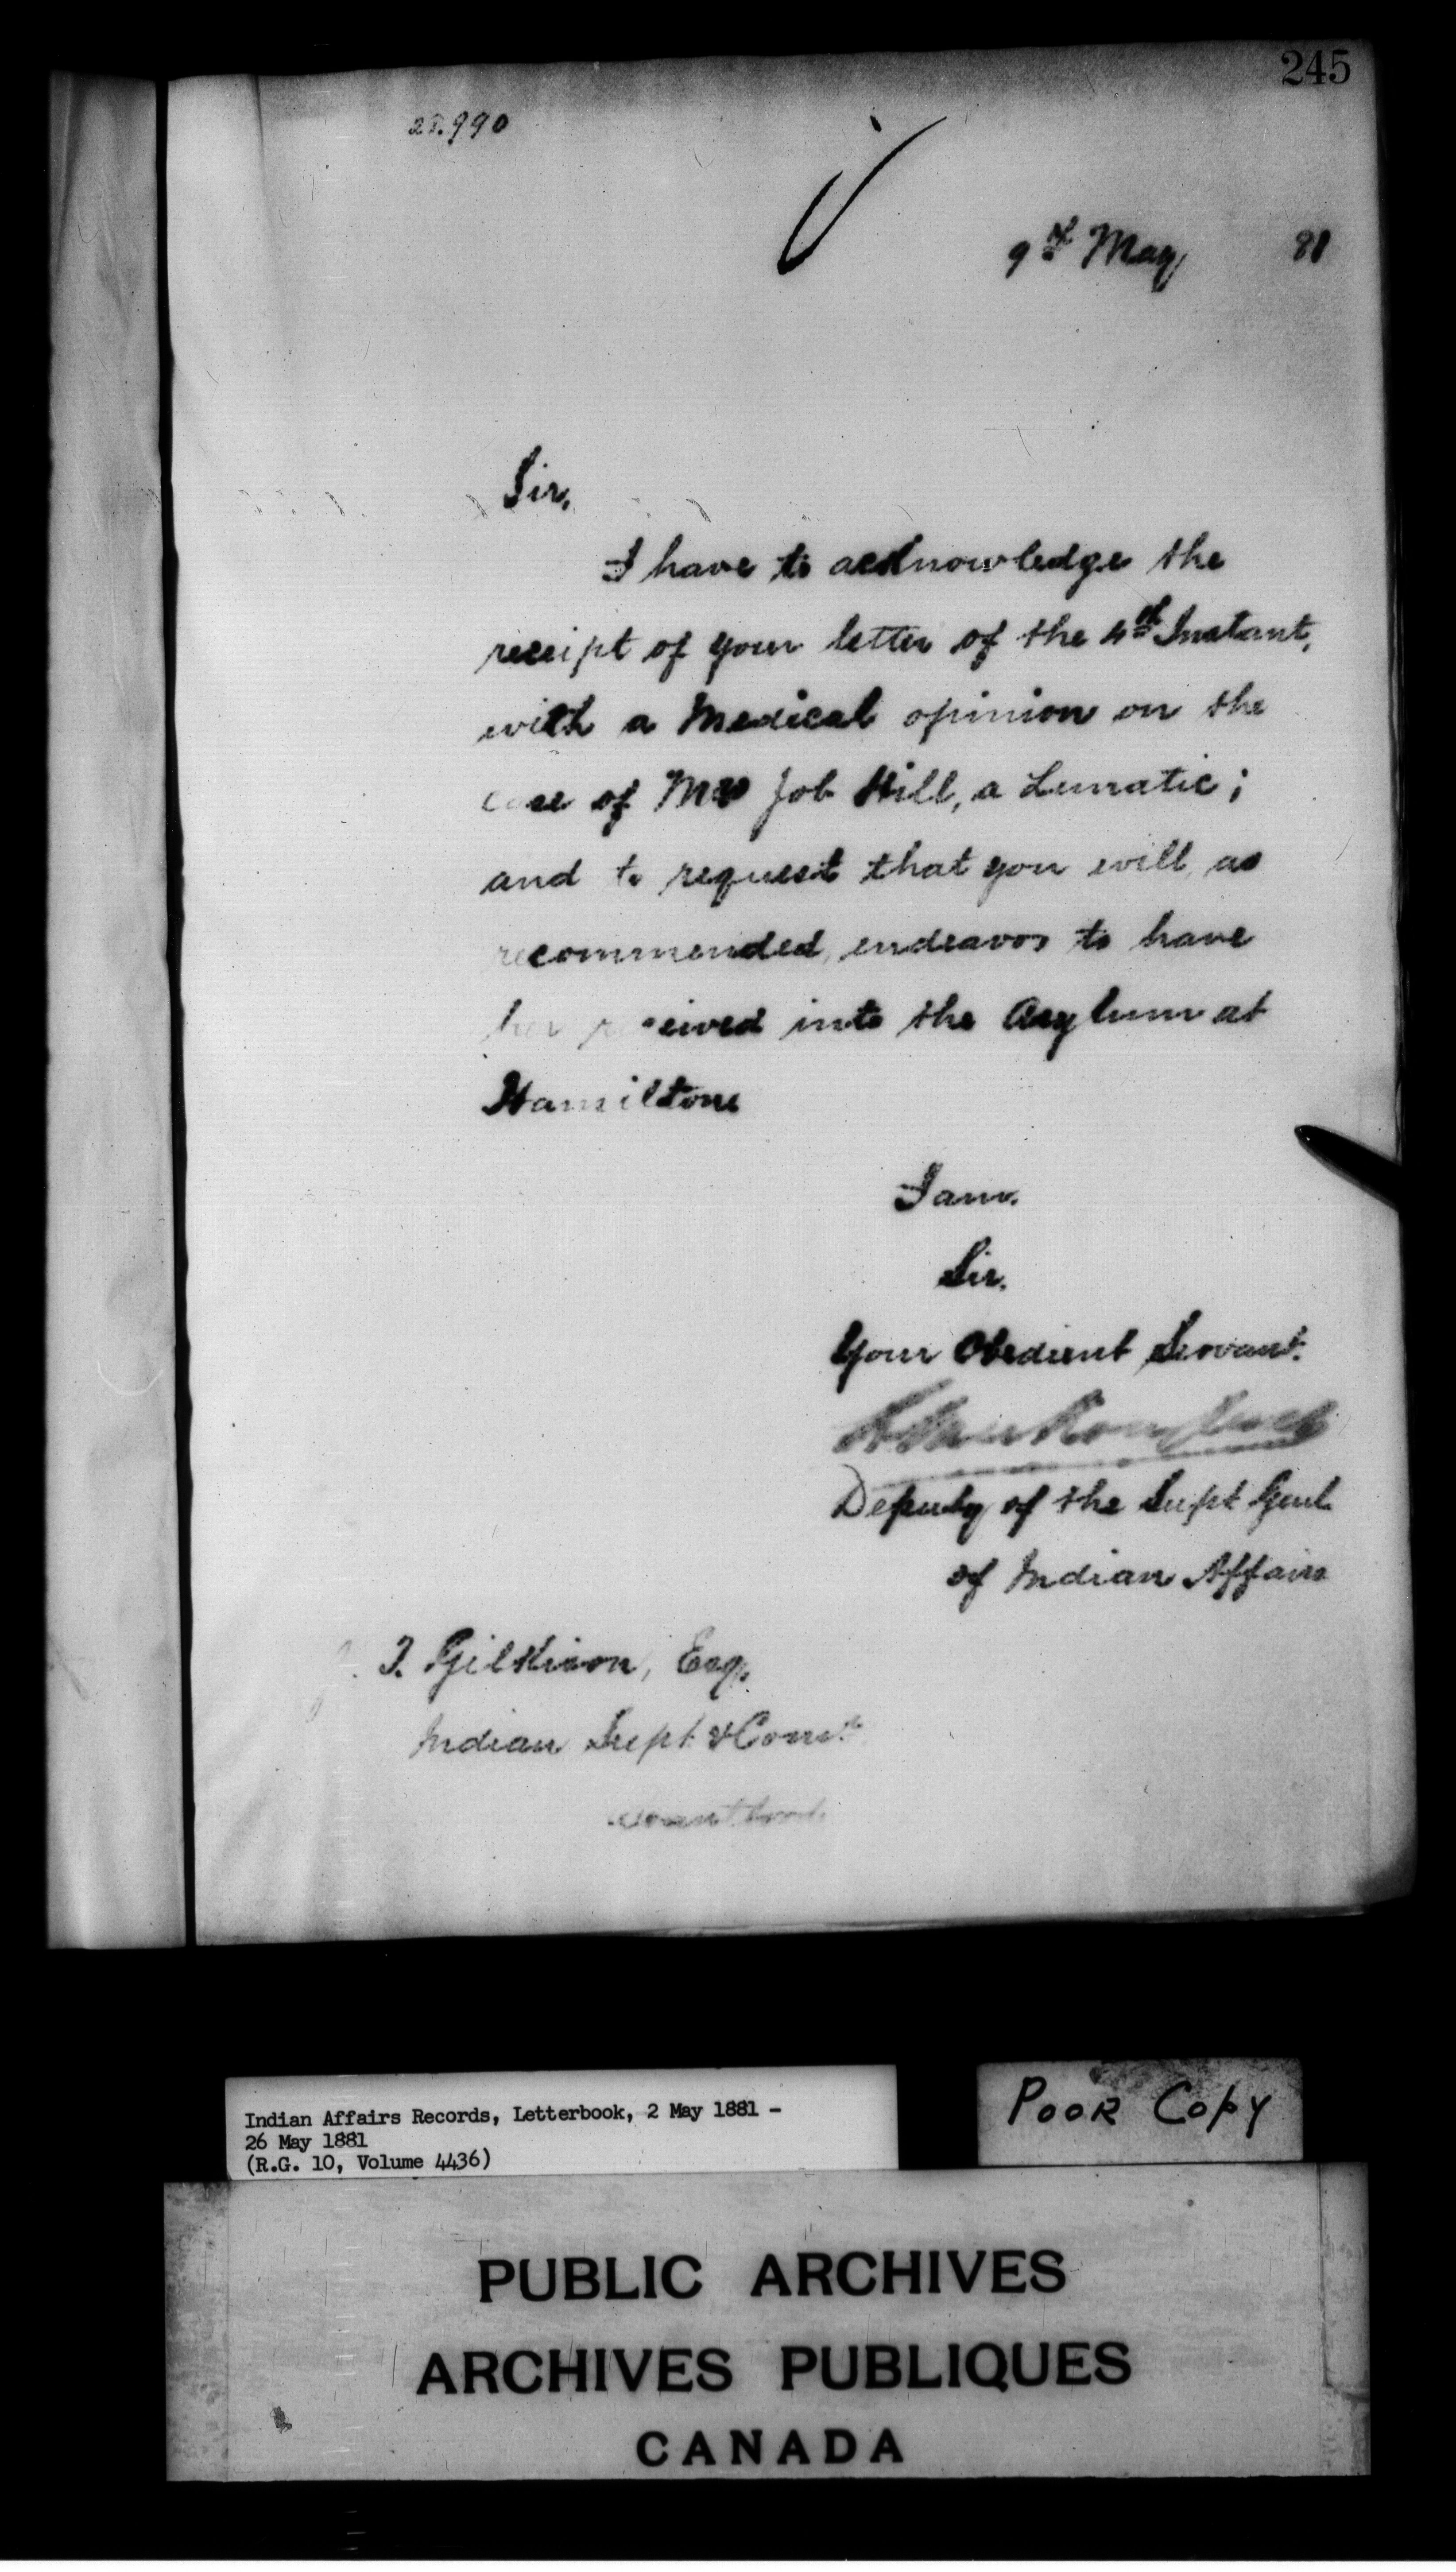 245
28.990
9th May 81
Sir,
I have to acknowledge the
receipt of your letter of the 4th Instant,
with a Medical opinion on the
case of Mrs Job Hill, a Lunatic;
and to request that you will, as
recommended, endeavor to have
her received into the Asylum at
Hamilton
I am.
Sir.
Your Obedient Servant.
Deputy of the Supt Genl
of Indian Affairs
J. T. Gilkison, Esq.
Indian Supt & Comr
Brantford.
Indian Affairs Records, Letterbook, 2 May 1881 -
26 May 1881
(R.G. 10, Volume 4436)
POOR COPY
PUBLIC ARCHIVES
ARCHIVES PUBLIQUES
CANADA